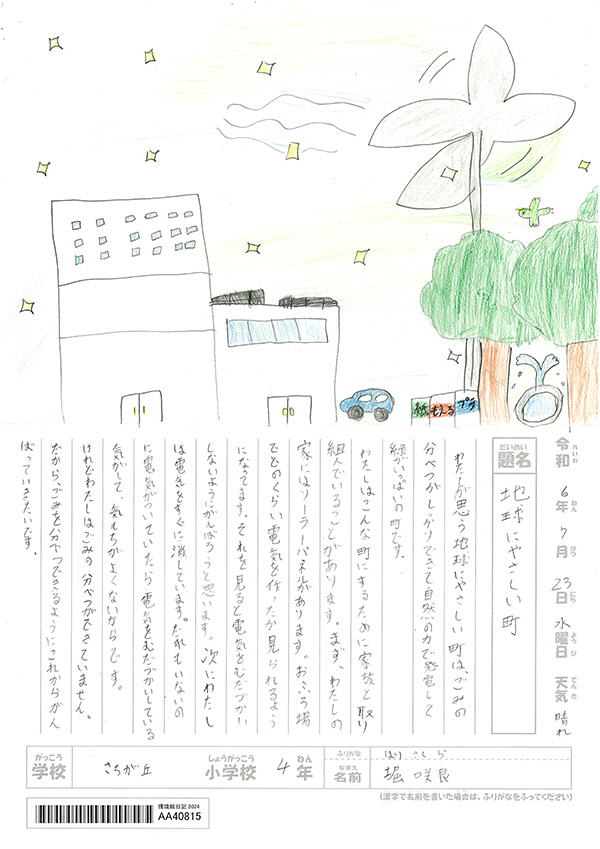 紙
もえる
プラ
令和6年7月23日水曜日 天気 晴れ
れいわ ねん がつ にち ようび てんき
だいめい
題名
地球にやさしい町
わたしが思う地球にやさしい町は、ごみの
分べつがしっかりできて自然の力で発電して
緑がいっぱいの町です。
わたしはこんな町にするために家族と取り
組んでいることがあります。まず、わたしの
家にはソーラーパネルがあります。おふろ場
でどのくらい電気を作ったか見られるよう
になってます。それを見ると電気をむだづかい
しないようにがんばろうと思います。次にわたし
は電気をすぐに消しています。だれもいないの
に電気がついていたら電気をむだづかいしている
気がして、気もちがよくないからです。
けれどわたしはごみの分べつができていません。
だから、ごみを分べつできるようにこれからがん
ばっていきたいです。
がっこう
学校
さちが丘
しょうがっこう
小学校
4年
ねん
ふりがな
ほり さくら
なまえ
名前
堀 咲良
(漢字で名前を書いた場合は、ふりがなをふってください)
環境絵日記 2024
AA40815